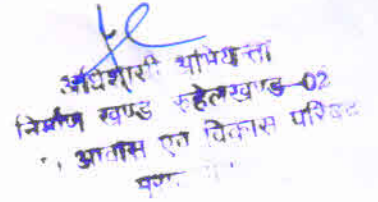 अधिशासी अभियन्ता
निर्माण खण्ड रुहेलखण्ड-02
आवास एवं विकास परिषद